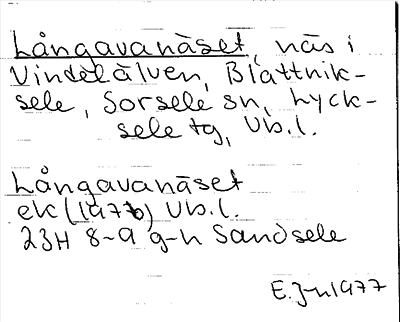 Långavanäset, näs i
Vindelälven, Blattnik-
sele, Sorsele sn, Lyck-
sele tg, Vb.l.
Långavanäset
ek (1976) Vb.l.
23H 8-9 g-h Sandsele
E. J-n 1977